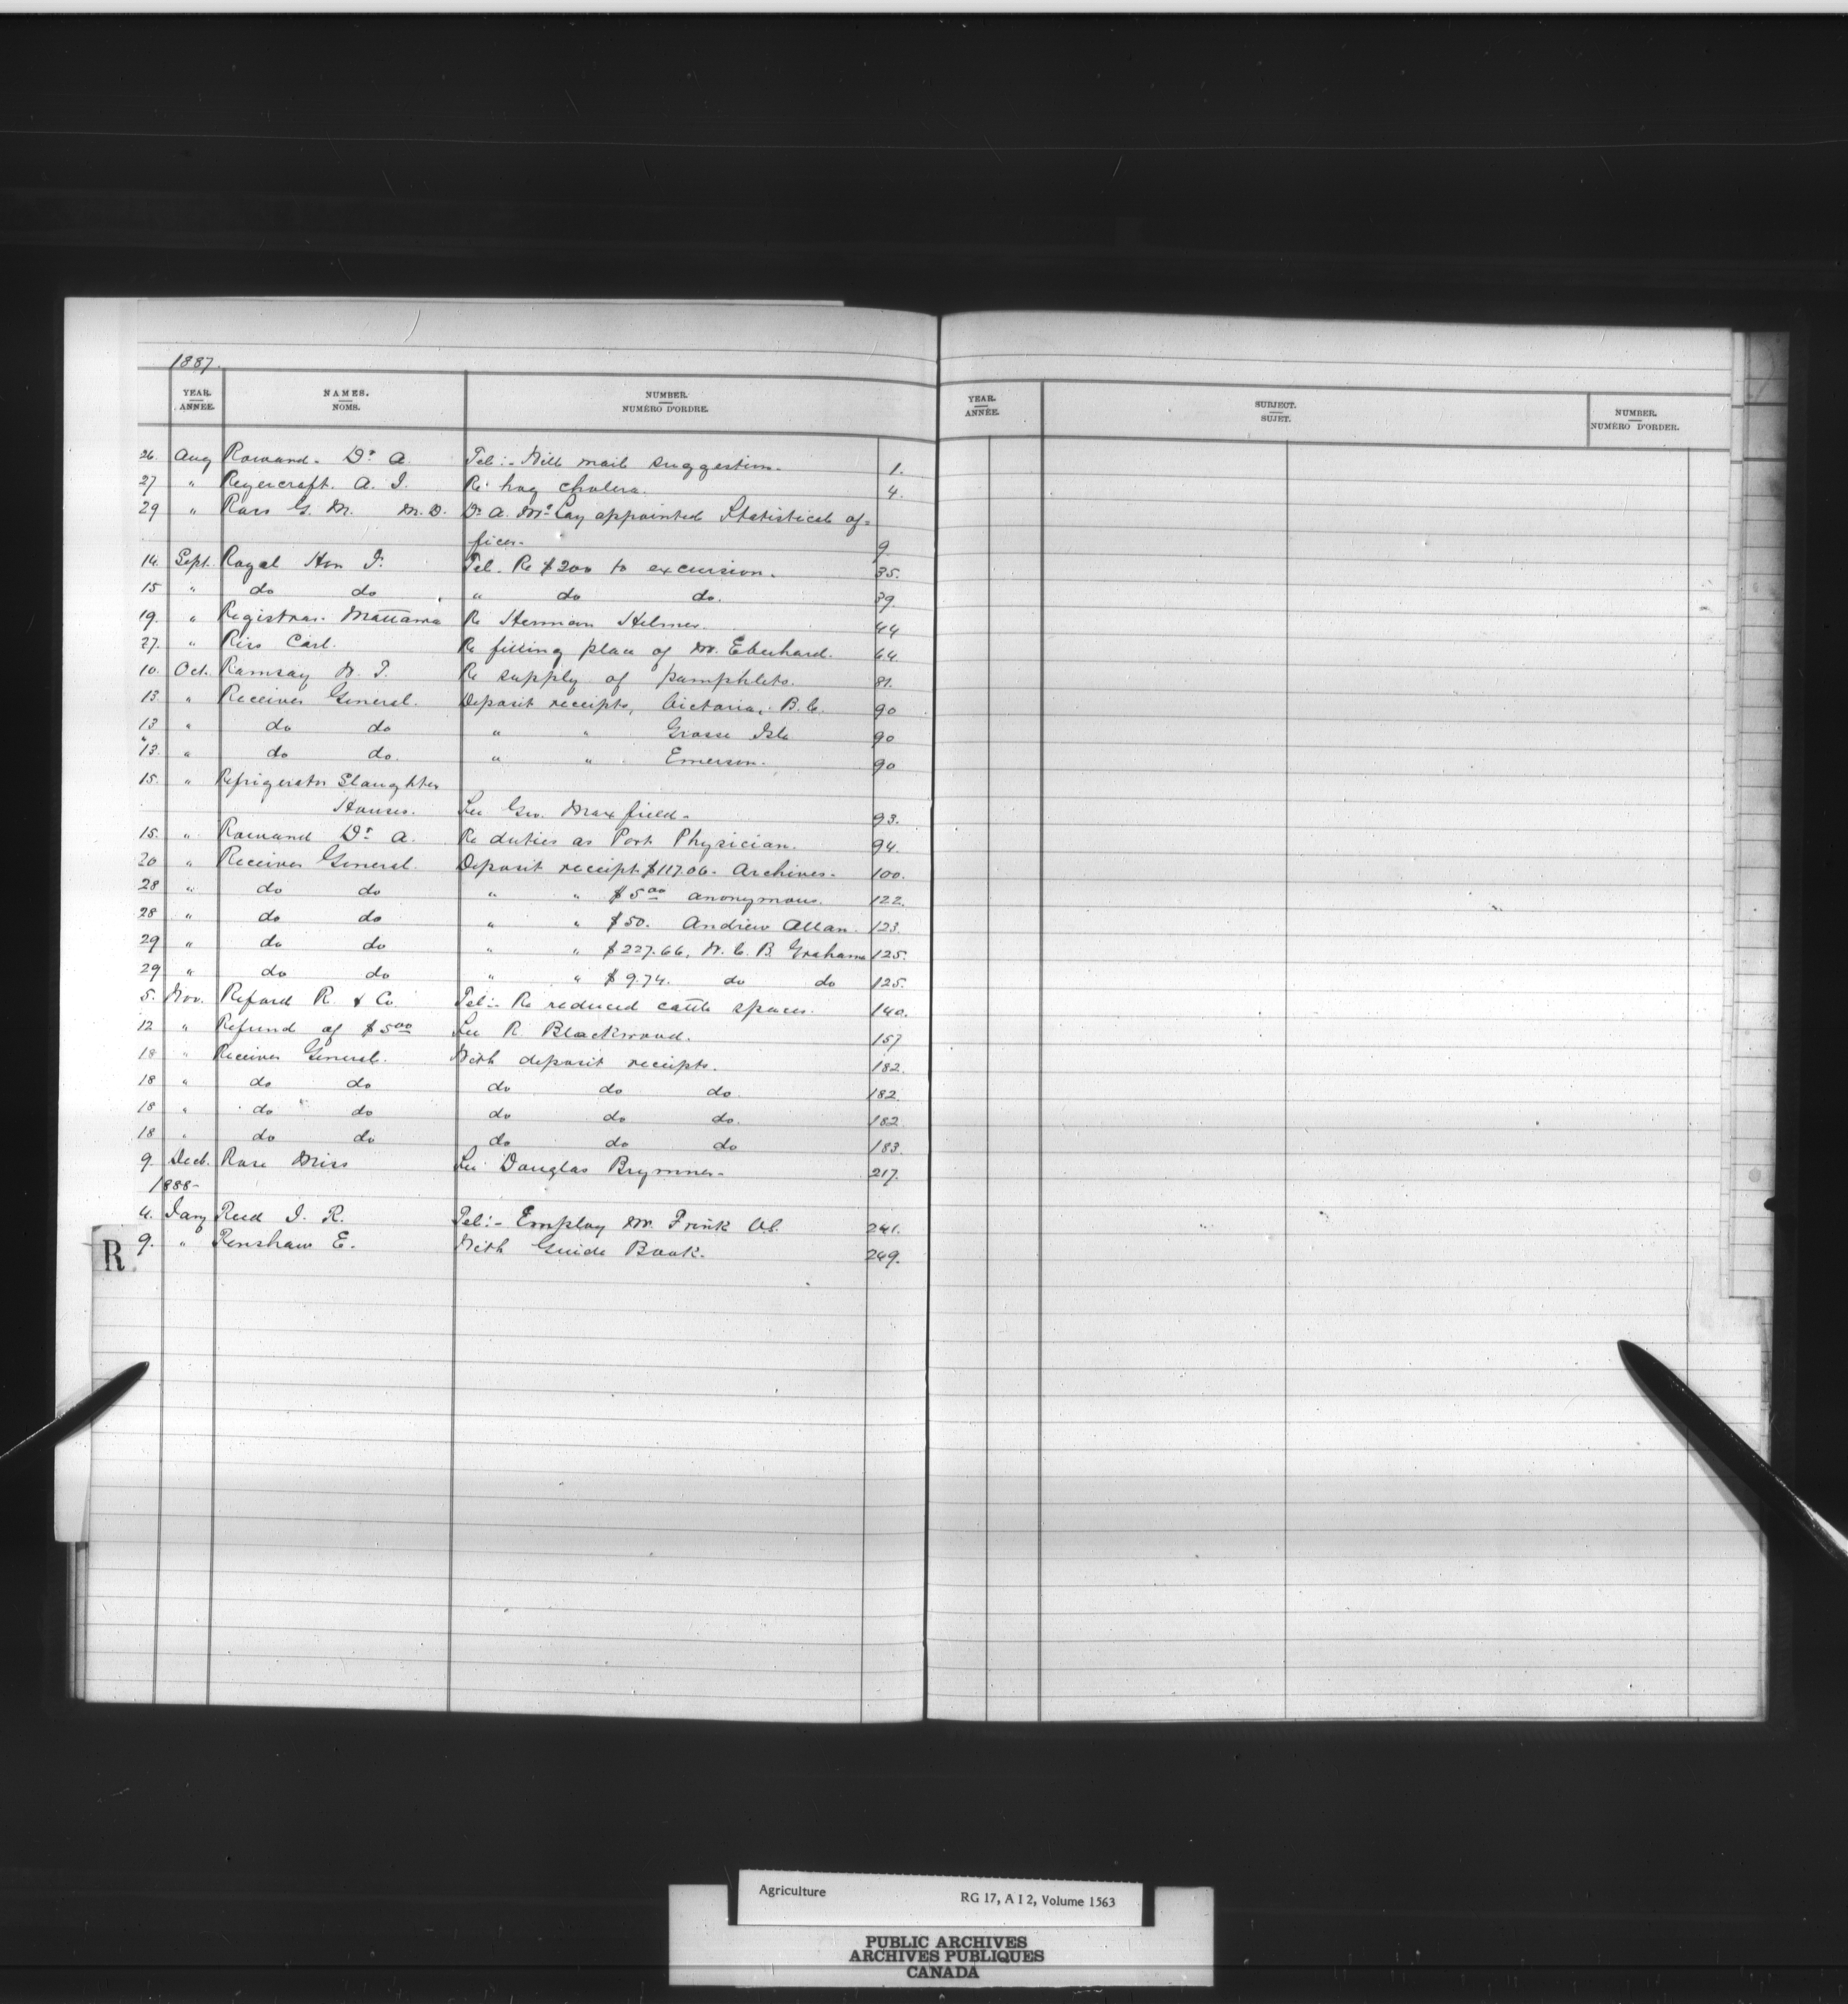 1887.
YEAR. ANNÉE. NAMES. NOMS. NUMBER. NUMÉRO D'ORDRE.
YEAR. ANNÉE. SUBJECT. SUJET. NUMBER. NUMÉRO D'ORDER.
26. Aug Rowand. Dr. A. Tel:- Will mail suggestion. 1.
27 " A. I. Re hog cholera. 4.
29 " Ross G. M. M.D. Dr. A. McLay appointed Statistical of=
ficer. 9
14. Sept. Royal Hon J. Tel. Re $200 to excursion. 35.
15 " do do " do do. 39.
19. " Registrar. Mattawa Re Herman Helmer. 44
27. " Riss Carl. Re filling place of Mr. Eberhard. 64.
10. Oct. Ramsay W. T. Re supply of pamphlets. 81.
13. " Receiver General. Deposit receipts, Victoria, B.C. 90
13 " do do " " Grosse Isle 90
13. " do do. " " Emerson. 90
15. " Refrigerator Slaughter
Houses. See Geo. Maxfield. 93.
15. " Rowand Dr. A. Re duties as Port Physician. 94.
20 " Receiver General Deposit receipt $117.06. Archives. 100.
28 " do do " " $5.00 anonymous. 122.
28 " do do " " $50. Andrew Allan. 123.
29 " do do " " $227.66, W. C. B. Grahame 125.
29 " do do " " $9.74. do do 125.
5. Nov. Reford R. & Co. Tel:- Re reduced cattle spaces. 140.
12 " Refund of $5.00 See R. Blackwood. 157
18 " Receiver General. With deposit receipts. 182.
18 " do do do do do. 182.
18 " do do do do do. 182.
18 " do do do do do 183.
9. Decb. Rose Miss See Douglas Brymner. 217.
1888-
4. Jany Reed J. R. Tel:- Employ Mr. Frink 241.
9. " Renshaw E. With Guide Book. 249.
R
Agriculture RG 17, A I 2, Volume 1563
PUBLIC ARCHIVES
ARCHIVES PUBLIQUES
CANADA